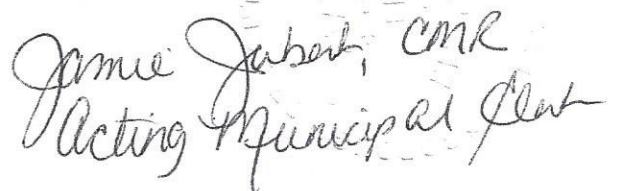 Jamie Jubert, CMR
Acting Municipal Clerk